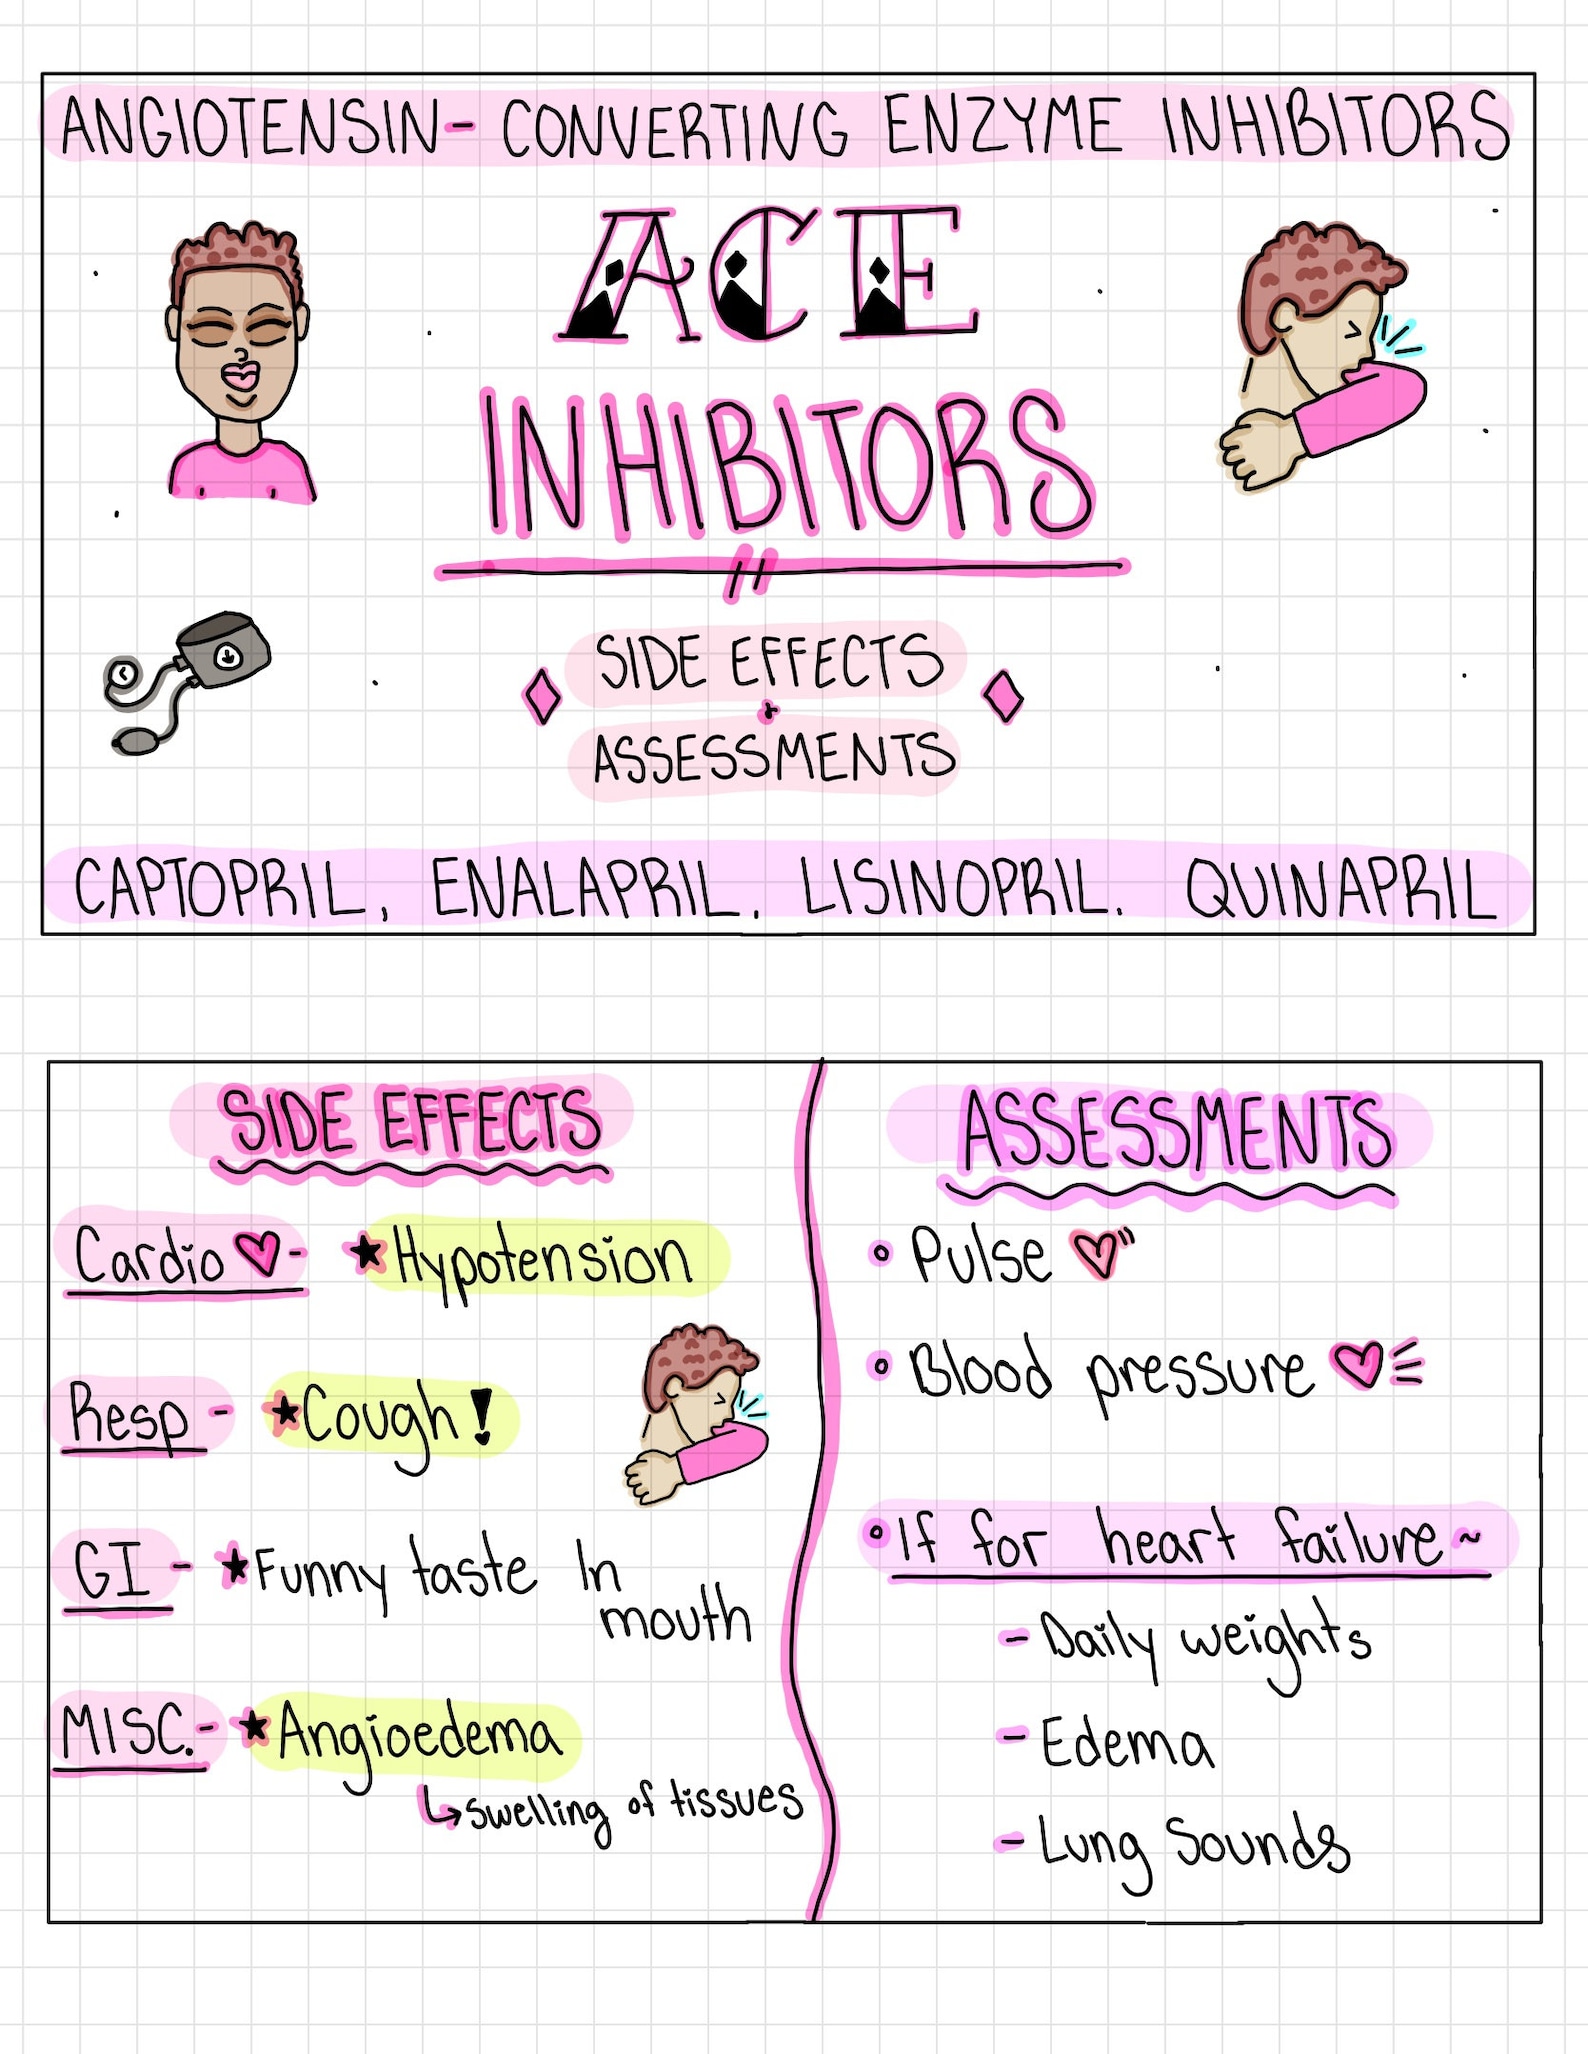 ANGIOTENSIN- CONVERTING ENZYME INHIBITORS
ACE
INHIBITORS
SIDE EFFECTS
+
ASSESSMENTS
CAPTOPRIL, ENALAPRIL, LISINOPRIL. QUINAPRIL
SIDE EFFECTS
Cardio - ★ Hypotension
Resp - ★ Cough!
GI - ★ Funny taste In
mouth
MISC. - ★ Angioedema
↳ swelling of tissues
ASSESSMENTS
• Pulse
• Blood pressure
• If for heart failure ~
- Daily weights
- Edema
- Lung Sounds